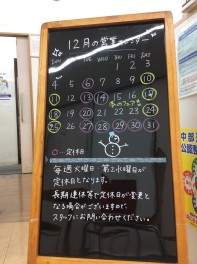 12月の営業カレンダー
SUN MON TUE WED THU FRI SAT
1 2 3
4 5 6 7 8 9 10
11 12 13 14 15 16 17
18 19 20 21 22 23 24
25 26 27 28 29 30 31
○…定休日
毎週火曜日 第2水曜日が
定休日となります。
長期連休等で定休日が変更と
なる場合がございますので、
スタッフにお問い合わせください。
中部
公認